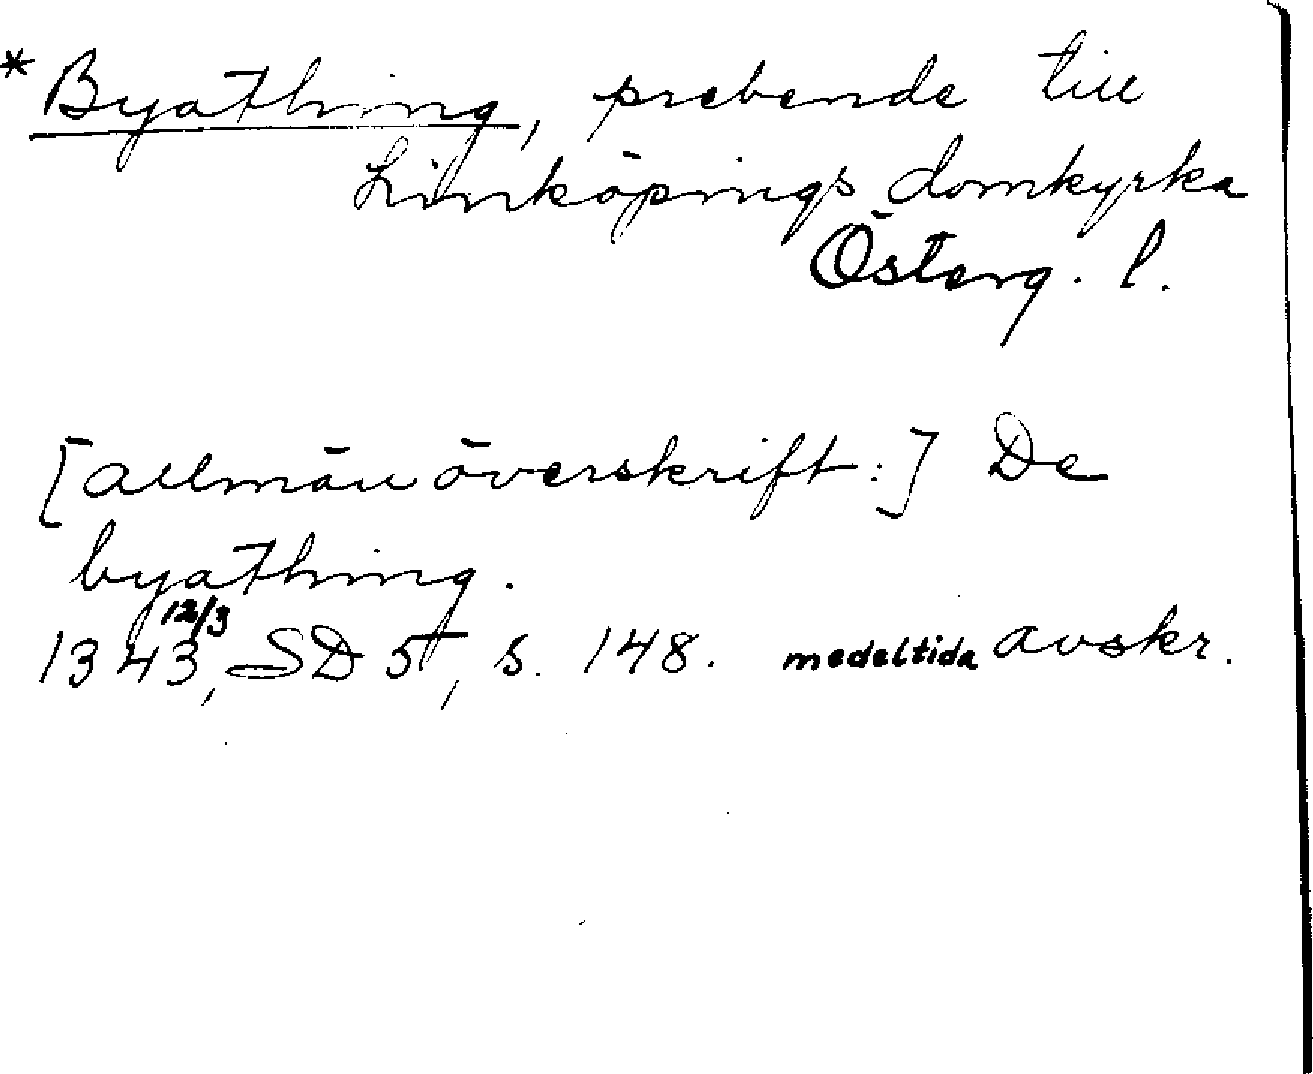 * Byathing, prebende till
Linköpings domkyrka
Österg. l.
[allmän överskrift:] De
byathing.
1343 12/3, SD 5, s. 148. medeltida avskr.